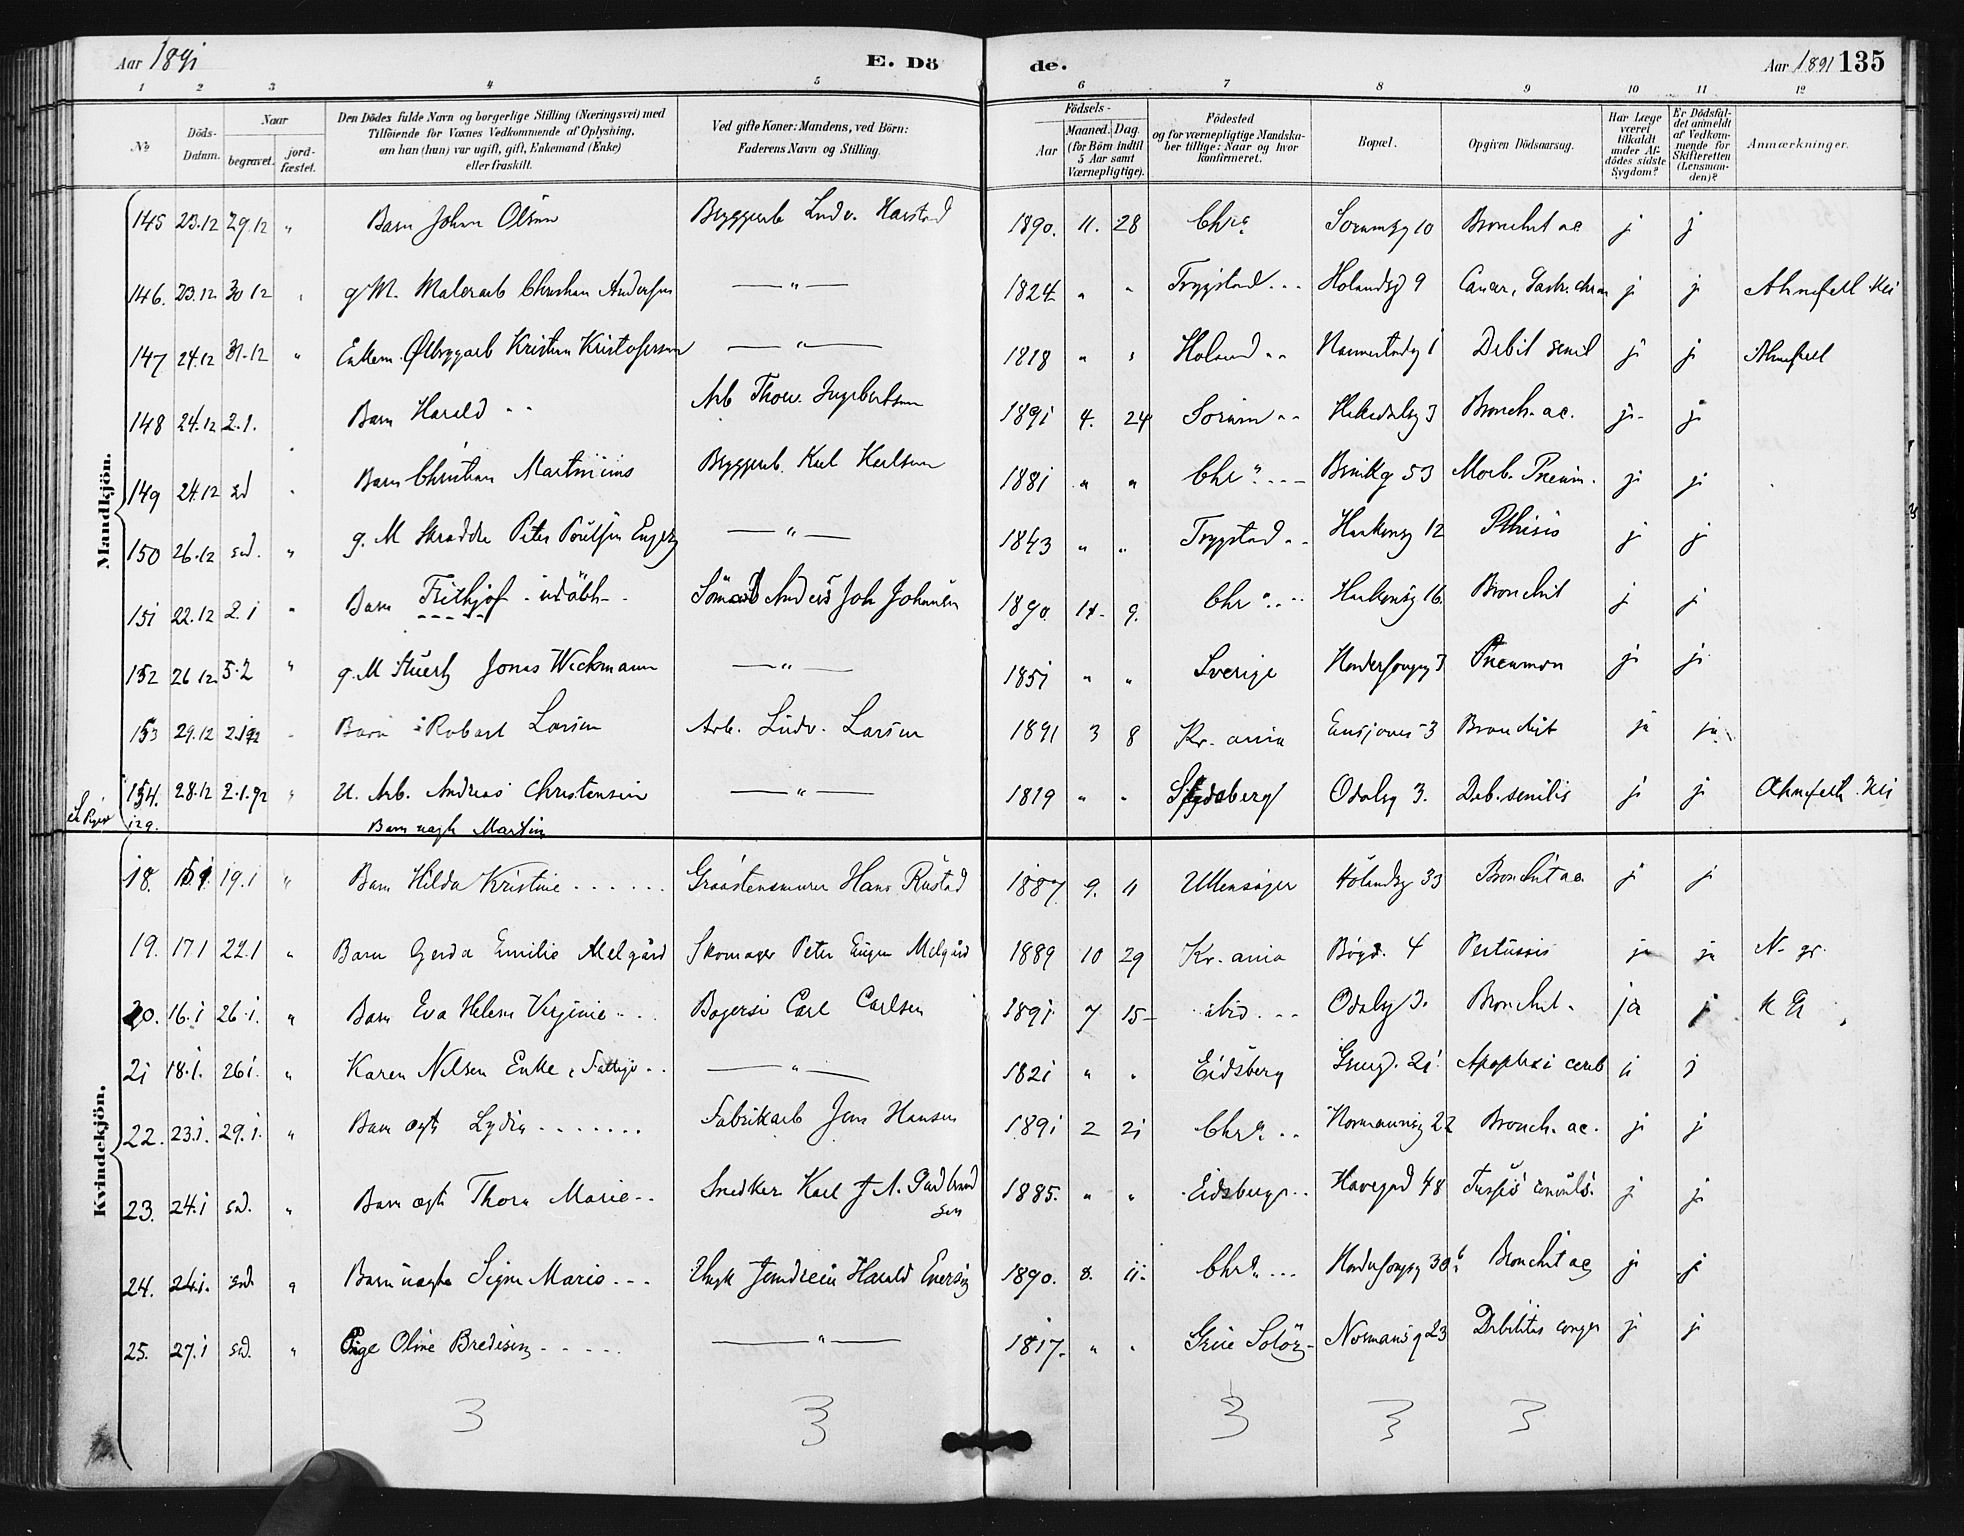 Aar 1891 E. Dö de. Aar 1891 135
1 2 3 4 5 6 7 8 9 10 11 12
No Döds-Datum. Naar begravet. jordfæstet. Den Dödes fulde Navn og borgerlige Stilling (Næringsvei) med Tilföiende for Voxnes Vedkommende af Oplysning, om han (hun) var ugift, gift, Enkemand (Enke) eller fraskilt. Ved gifte Koner: Mandens, ved Börn: Faderens Navn og Stilling. Födsels- Aar Maaned. Dag. (for Börn indtil 5 Aar samt Værnepligtige). Födested og for værnepligtige Mandskaber tillige: Naar og hvor konfirmeret. Bopæl. Opgiven Dödsaarsag. Har Læge været tilkaldt under Afdödes sidste Sygdom? Er Dödsfaldet anmeldt af Vedkommende for Skifteretten (Lensmanden)? Anmærkninger.
Mandkjön.
145 23.12 29.12 " Barn Johan Olsen Bryggerarb Ludv. Harstad 1890. 11. 28 Chra Sorumsg 10 Bronchit ac j j
146. 23.12 30 12 " gM. Malerarb Christian Andersen — " — 1824 " " Trygstad Holandsg 9 Cancer, j j
147 24.12 31.12 " Enkem. Ølbryggarb Kristen Kristofersen — " — 1818 " " Holand 1 Debil senil j j
148 24.12 2.1. Barn Harald Arb Thorv. Ingebertsen 1891 4. 24 Sorum 3 Bronch. ac. j j
149 24.12 sd Barn Christian Martinius Bryggerarb. Karl Karlsen 1881 " " Chra 53 Morb. Pneum. j j
150 26.12 sd. " g. M Skrædder Peter Poulsen — " — 1843 " " Trygstad 12 Pthisis j j
151 22.12 2.1 " Barn Frithjof udöbt Anders Joh Johansen 1890 11 9. Chra 16 Bronchit j j
152 26 12 5.2 " g. M Jonas Wickmann — " — 1851 " " Sverige 3 Pneumon j j
153 29.12 2.1 92 Barn Robert Larsen Arb. Ludv. Larsen 1891 3 8 Kr. ania 3 Bronchit ja ja
154. 28.12 2.1.92 " U. Arb. Andreas Christensen — " — 1819 " " Spydeberg Odalsg 3. Deb. senilis j j
129. Barn uægte Martin
Kvindekjön.
18. 15.1 19.1 " Barn Hilda Kristine Graastensmurer Hans Rustad 1887 9. 11 Ullensager Hölandsg 33 Bronchit ac. j j
19. 17 1 22.1 " Barn Gerda Emilie Melgård Skomager Peter Eugen Melgård 1889 10 29 Kr. ania 4 Pertussis ja ja N. gr.
20. 16.1 26.1. " Barn Eva Helene Virginie Bogersv Carl Carlsen 1891 7 15 ibid Odalsg 3. Bronchit. ja j
21 18.1. 26 1. " Karen Nilsen Enke, Fattigu — " — 1821 " " Eidsberg 21 Apoplexi cereb j j
22. 23.1. 29.1. " Barn ægte Lydia Fabrikarb Jens Hansen 1891 2 21 Chra Normannsg 22 Bronch. ac. j j
23. 24.1 sd. " Barn ægte Thora Marie Snedker Karl J A. Gulbrandsen 1885. " " Eidsberg 48 Tussis convuls. j j
24. 24.1. sd. " Barn uægte Signe Marie Harald 1890. 8. 11. Chra 30 b Bronchit ac j j
25. 27.1 sd. " Pige Oline Bredesen — " — 1817. " " Grue Solör Normansg 23 Debilitas j j
3 3 3 3 3